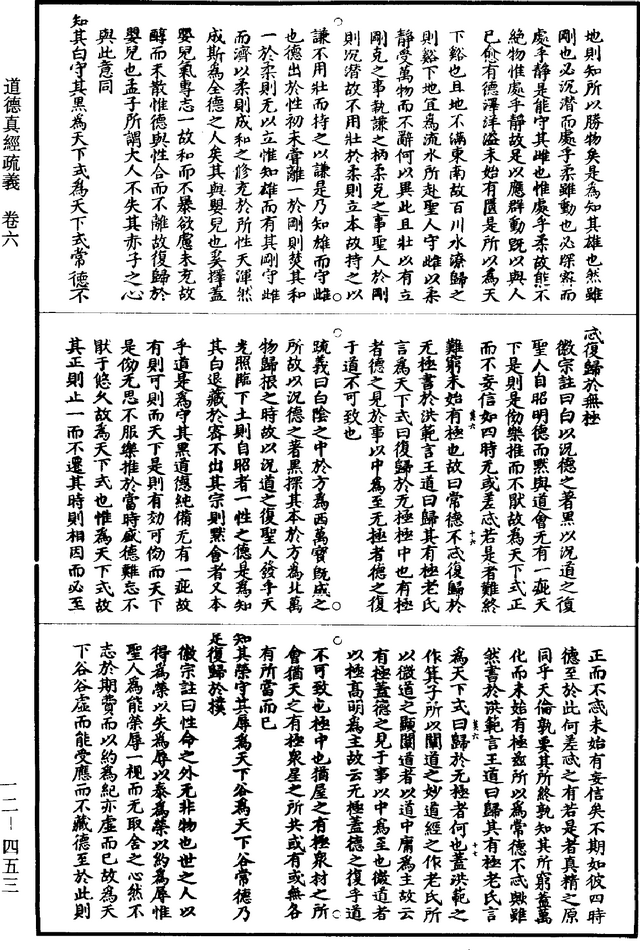 道德真經疏義　卷六
地則知所以勝物矣是為知其雄也然雖
剛也必沉潛而處乎柔雖動也必深默而
處乎靜是能守其雌也惟處乎柔故能不
絕物惟處乎靜故足以應群動既以與人
已愈有德澤洋溢未始有匱是所以為天
下谿也且地不滿東南故百川水潦歸之
則谿下地宜為流水所赴聖人守雌以柔
靜受萬物而不辭何以異此且壯以有立
剛克之事執謙之柄柔克之事聖人於剛
則沉潛故不用壯於柔則立本故持之以
謙不用壯而持之以謙是乃知雄而守雌
也德出於性初未嘗離一於剛則焚其和
一於柔則无以立惟知雄而有其剛守雌
而濟以柔則成和之修充於所性天渾然
成斯為全德之人矣其與嬰兒也奚擇蓋
嬰兒氣專志一故和而不暴欲慮未充故
醇而未散惟德與性合而不離故復歸於
嬰兒也孟子所謂大人不失其赤子之心
與此意同
知其白守其黑為天下式為天下式常德不
忒復歸於無極
徽宗註曰白以況德之著黑以況道之復
聖人自昭明德而默與道會无有一疵天
下是則是傚樂推而不猒故為天下式正
而不妄信如四時无或差忒若是者難終
難窮未始有極也故曰常德不忒復歸於
无極書於洪範言王道曰歸其有極老氏
言為天下式曰復歸於无極極中也有極
者德之見於事以中為至无極者德之復
于道不可致也
疏義曰白陰之中於方為西萬寶既成之
所故以況德之著黑探其本於方為北萬
物歸根之時故以況道之復聖人發乎天
光照臨下土則自昭者一性之德是為知
其白退藏於密不出其宗則默會者又本
乎道是為守其黑道德純備无有一疵故
有則可則而天下是則有効可傚而天下
是傚无思不服樂推於當時盛德難忘不
猒于悠久故為天下式也惟為天下式故
其正則止一而不遷其時則相因而必至
正而不忒未始有妄信矣不期如彼四時
德至於此何差忒之有若是者真精之原
同乎天倫孰要其所終孰知其所窮蓋萬
化而未始有極茲所以為常德不忒歟雖
然書於洪範言王道曰歸其有極老氏言
為天下式曰歸於无極者何也蓋洪範之
作箕子所以闡道之妙道經之作老氏所
以微道之顯闡道者以道中庸為主故云
有極蓋德之見于事以中為至也微道者
以極高明為主故云无極蓋德之復乎道
不可致也極中也猶屋之有極衆材之所
會猶天之有極衆星之所共或有或無各
有所當而已
知其榮守其辱為天下谷為天下谷常德乃
足復歸於樸
徽宗註曰性命之外无非物也世之人以
得為榮以失為辱以泰為榮以約為辱惟
聖人為能榮辱一視而无取舍之心然不
志於期費而以約為紀亦虛而已故為天
下谷谷虛而能受應而不藏德至於此則
一二－四五三